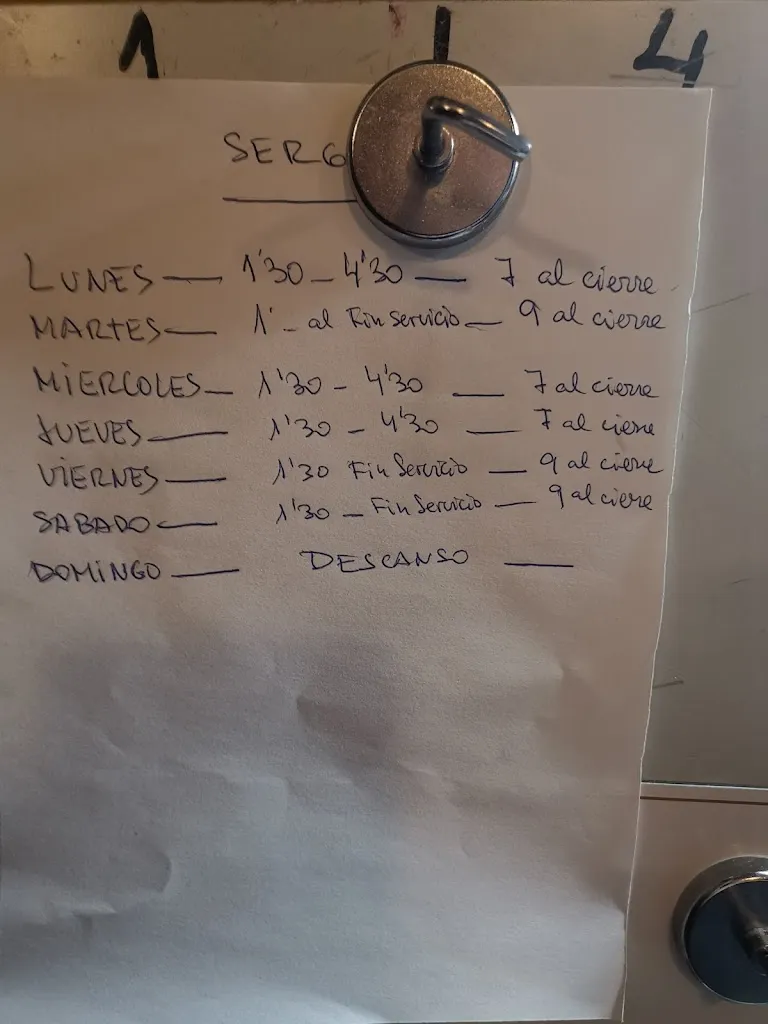 1 4
SERG
LUNES — 1'30 - 4'30 — 7 al cierre
MARTES — 1' - al Fin servicio — 9 al cierre
MIERCOLES — 1'30 - 4'30 — 7 al cierre
JUEVES — 1'30 - 4'30 — 7 al cierre
VIERNES — 1'30 Fin Servicio — 9 al cierre
SABADO — 1'30 - Fin Servicio — 9 al cierre
DOMINGO — DESCANSO —